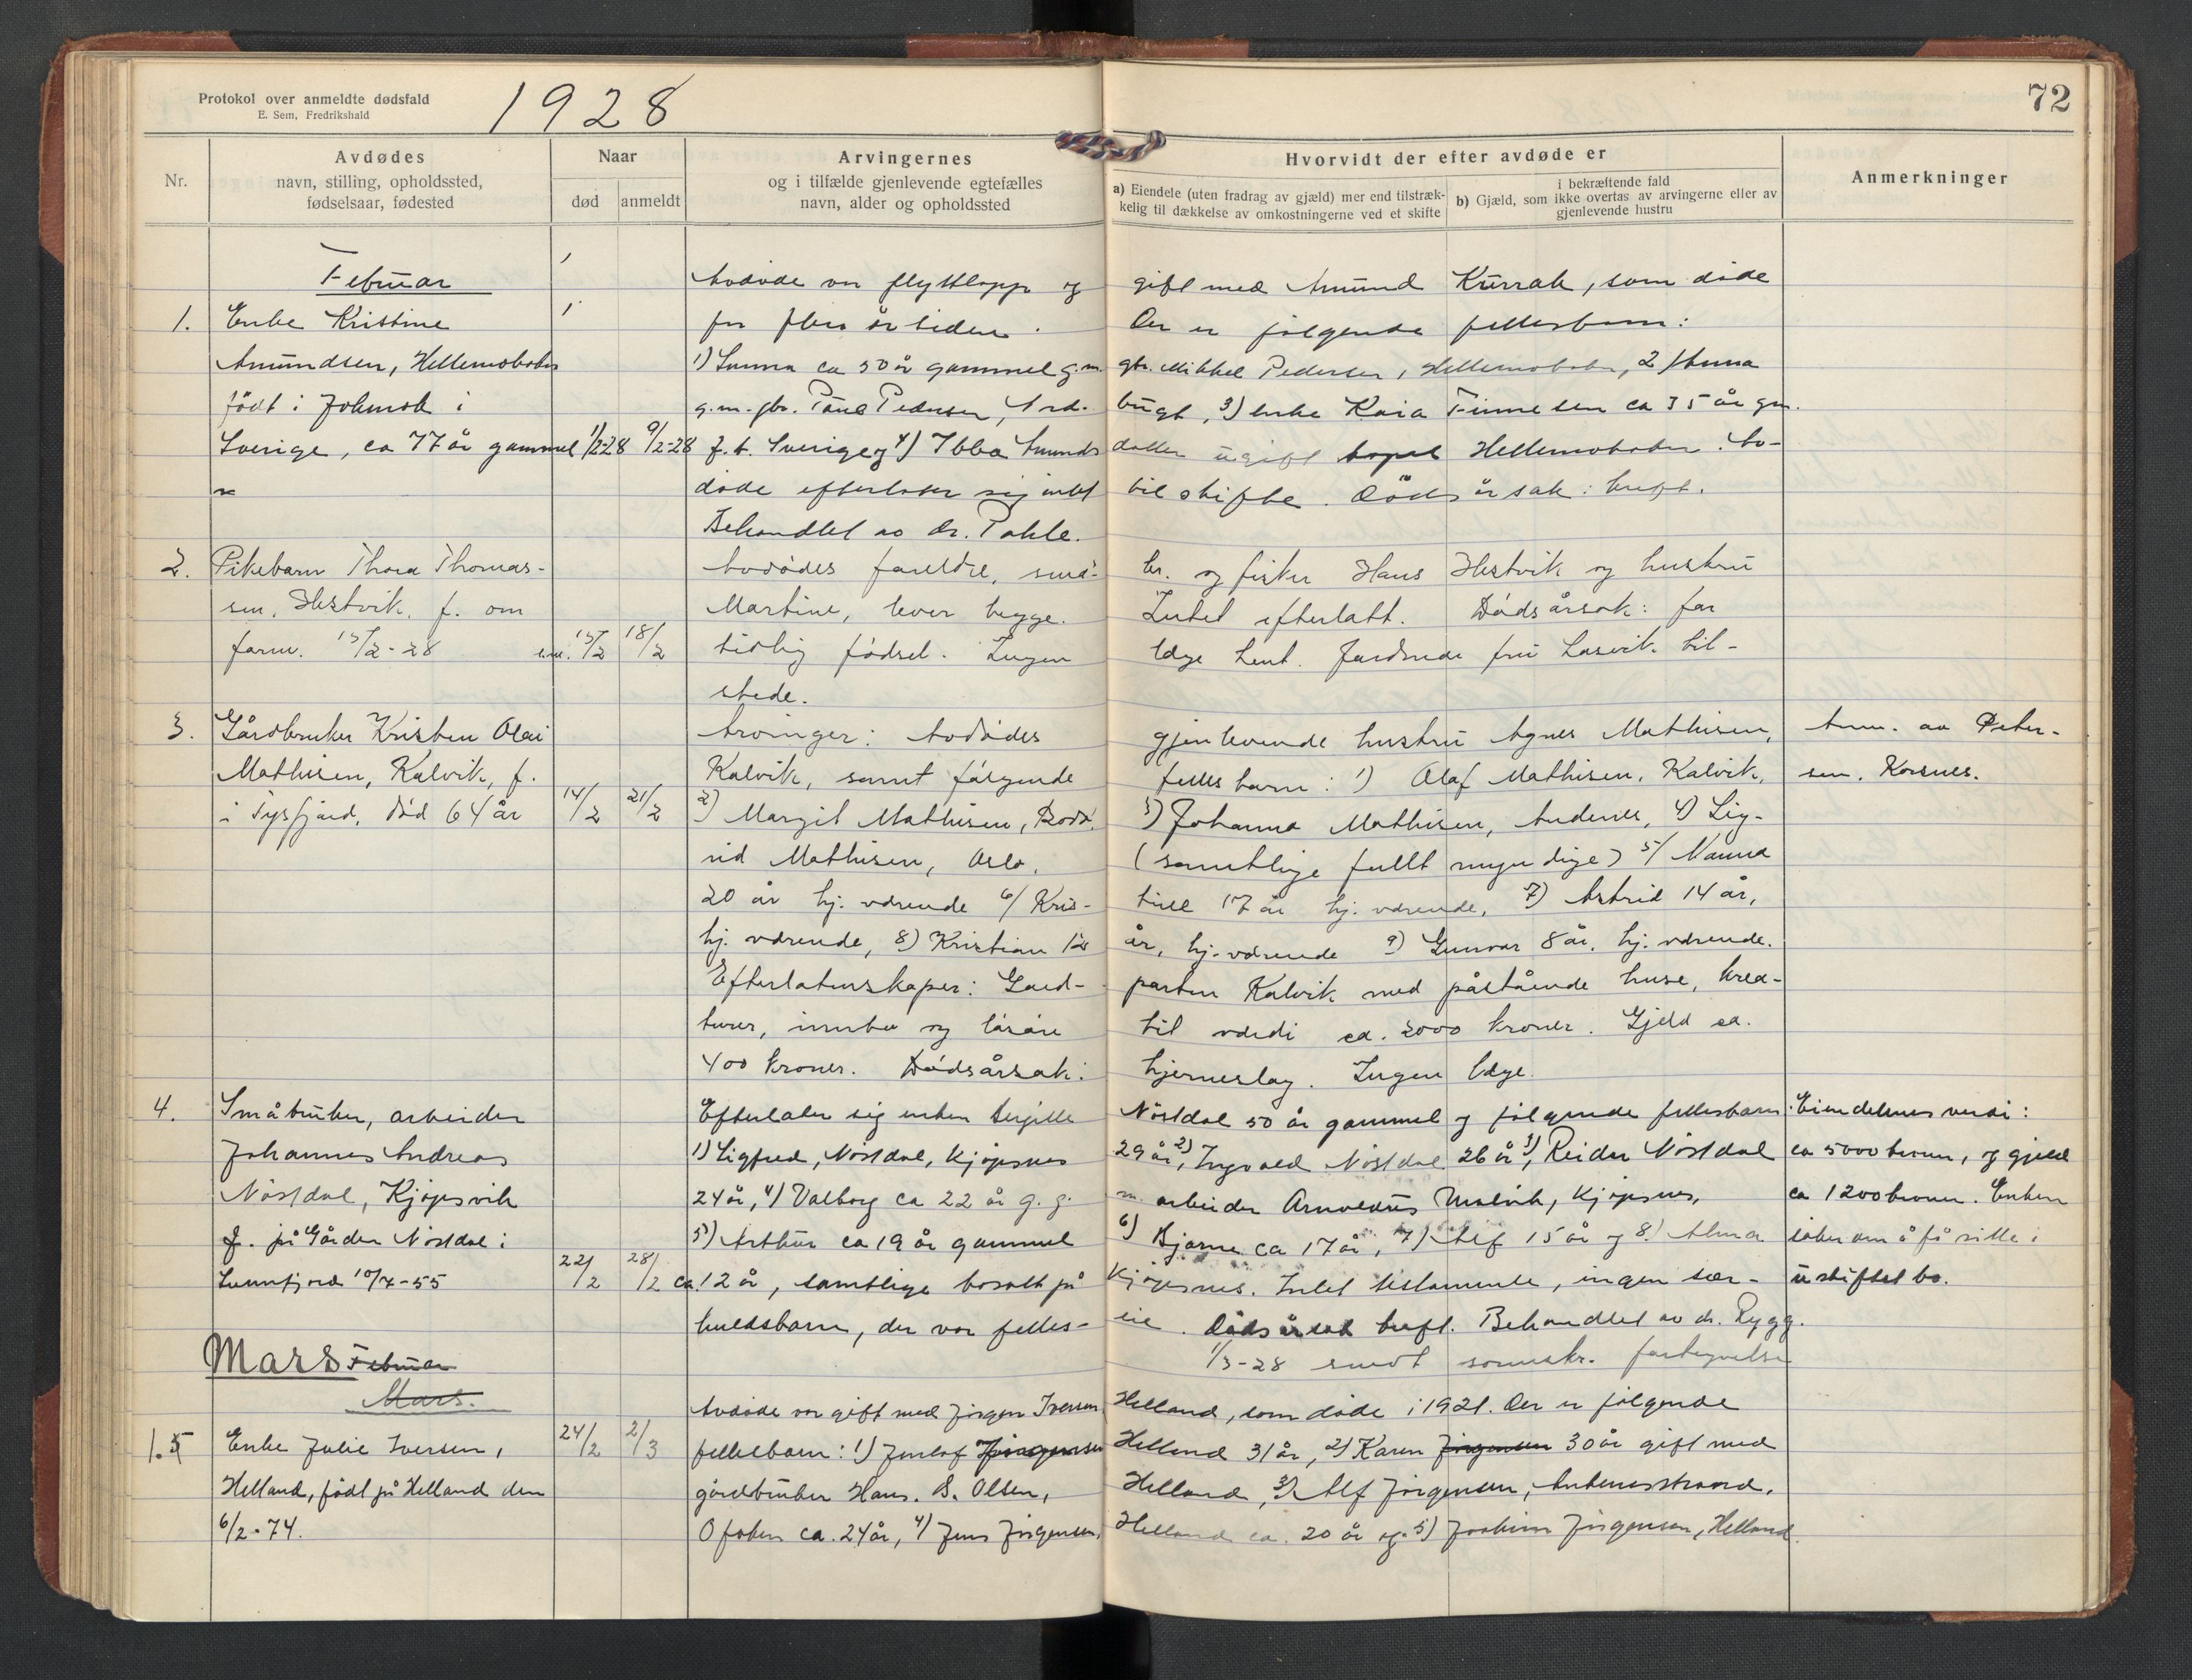 Protokol over anmeldte dødsfald
E. Sem, Fredrikshald
1928
72
Nr.
Avdødes
navn, stilling, opholdssted,
fødselsaar, fødested
Naar
død
anmeldt
Arvingernes
og i tilfælde gjenlevende egtefælles
navn, alder og opholdssted
Hvorvidt der efter avdøde er
a) Eiendele (uten fradrag av gjæld) mer end tilstræk-
kelig til dækkelse av omkostningerne ved et skifte
i bekræftende fald
b) Gjæld, som ikke overtas av arvingerne eller av
gjenlevende hustru
Anmerkninger
Februar
1. Enke Kristine
Amundsen, Hellemobotn
født i Jokmok i
Sverige, ca 77 år gammel 1/2-28 9/2-28
Avdøde var flyttlapp og gift med Amund Kurrak, som døde
for flere år siden. Der er følgende fellesbarn:
1) Sunna ca 50 år gammel g.m. gbr. Mikkel Pedersen, Hellemobotn, 2) Anna
g.m. gbr. Paul Pedersen, Nord- bugt, 3) enke Kaia Finnesen ca 35 år gm.
f.t. Sverige og 4) Ibba Amunds datter ugift bopel Hellemobotn. Av-
døde efterlater sig intet til skifte. Dødsårsak: kreft.
Behandlet av dr. Pahle.
2. Pikebarn Thora Thomas-
sen, Hestvik. f. om
form. 15/2-28 em. 15/2 18/2
Avdødes foreldre, små- br. og fisker Hans Hestvik og hustru
Martine, lever begge. Intet efterlatt. Dødsårsak: for
tidlig fødsel. Ingen lege hent. Jordmor fru Losvik til-
stede.
3. Gårdbruker Kristen Olai
Mathisen, Kalvik, f.
i Tysfjord, død 64 år 14/2 21/2
Arvinger: Avdødes gjenlevende hustru Agnes Mathisen,
Kalvik, samt følgende felles barn: 1) Olaf Mathisen, Kalvik,
2) Margit Mathisen, Bodø, 3) Johanna Mathisen, Andenes, 4) Sig-
rid Mathisen, Oslo, (samtlige fullt myndige) 5/ Nanna
20 år hj. værende 6/ Kris- tine 17 år hj. værende, 7) Astrid 14 år,
hj. værende, 8) Kristian 12 år, hj. værende 9) Gunvor 8 år, hj. værende.
Efterlatenskaper: Gard- parten Kalvik med påstående huse, krea-
turer, innbo og løsøre til verdi ca. 2000 kroner. Gjeld ca.
400 kroner. Dødsårsak: hjerneslag. Ingen læge.
Anm. av Peter-
sen, Korsnes.
4. Småbruker, arbeider
Johannes Andreas
Nøstdal, Kjøpsvik
f. på Gården Nøstdal i
Sunnfjord 10/7-55 22/2 28/2
Efterlater sig enken Nøstdal 50 år gammel og følgende fellesbarn:
1) Sigfred, Nøstdal, Kjøpsnes 29 år, 2) Ingvald Nøstdal 26 år, 3) Reidar Nøstdal
24 år, 4) Valborg ca 22 år g. g. m. arbeider Arnoldus Malvik, Kjøpsnes,
5) Arthur ca 19 år gammel 6) Bjarne ca 17 år, 7) Alf 15 år og 8) Alma
ca 12 år, samtlige bosatt på Kjøpsnes. Intet testamente, ingen sær-
kuldsbarn, der var felles- eie. Dødsårsak kreft. Behandlet av dr. Rygg.
1/3-28 sendt
Eiendelenes verdi:
ca 5000 kroner, og gjeld
ca 1200 kroner. Enken
søker om å få sitte i
uskiftet bo.
Mars Februar
Mars.
1. 5 Enke Julie Iversen, 24/2 2/3
Helland, født på Helland den
6/2-74.
Avdøde var gift med Jørgen Iversen Helland, som døde i 1921. Der er følgende
fellesbarn: 1) Jørgensen Helland 31 år, 2) Karen Jørgensen 30 år gift med
gårdbruker Hans. S. Olsen, Helland, 3) Alf Jørgensen,
Ofoten ca. 24 år, 4) Jens Jørgensen, Helland ca. 20 år og 5) Joakim Jørgensen, Helland.